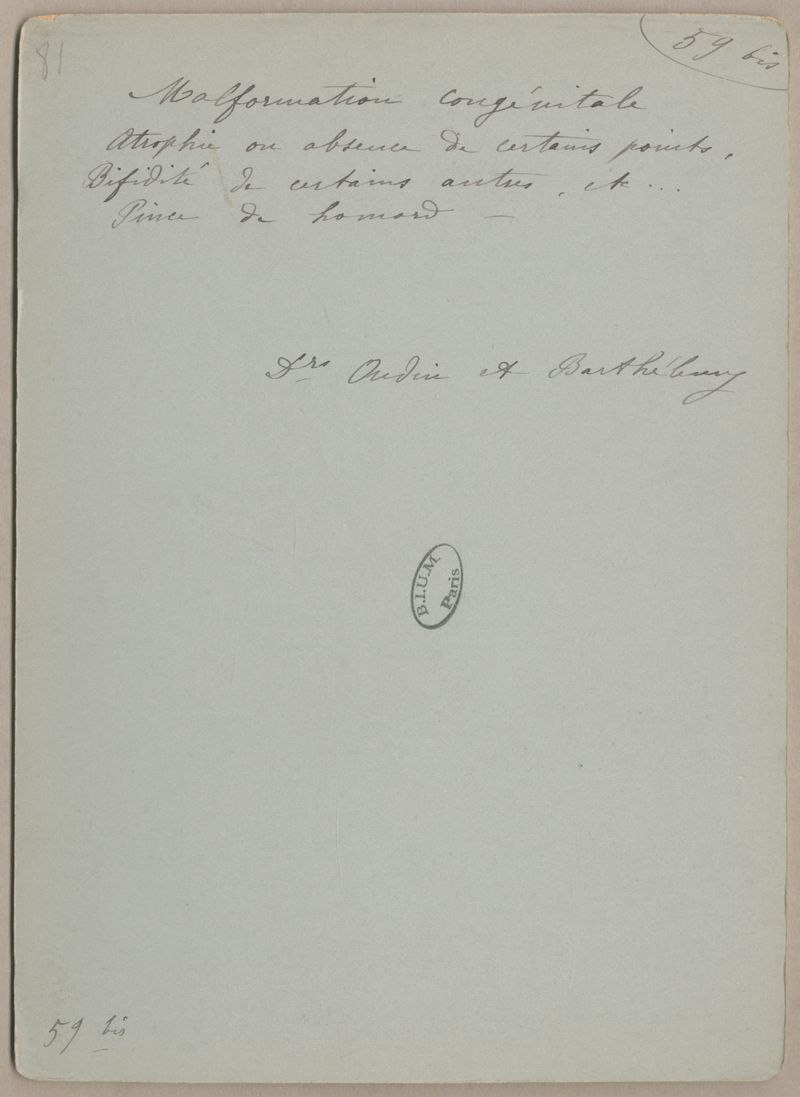 81
59 bis
Malformation congénitale
Atrophie ou absence de certains points,
Bifidité de certains autres, etc...
Pince de homard —
Drs Oudin et Barthélemy
B.I.U.M.
Paris
59 bis